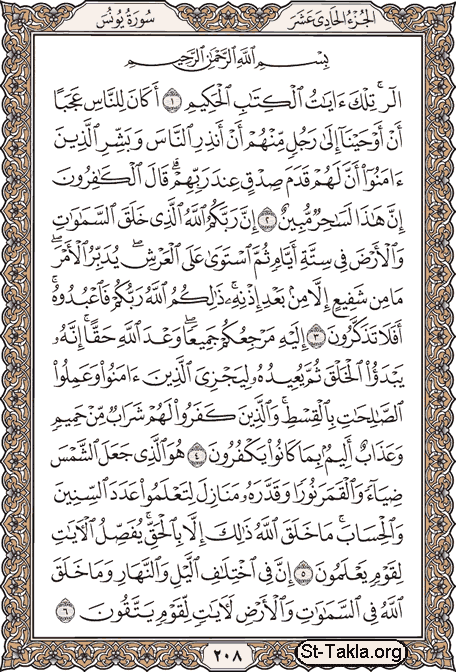 سُورَةُ يُونُسَ الجُزْءُ الحَادِى عَشَرَ
بِسْمِ ٱللَّهِ ٱلرَّحْمَٰنِ ٱلرَّحِيمِ
الٓر ۚ تِلْكَ ءَايَٰتُ ٱلْكِتَٰبِ ٱلْحَكِيمِ ١ أَكَانَ لِلنَّاسِ عَجَبًا
أَنْ أَوْحَيْنَآ إِلَىٰ رَجُلٍ مِّنْهُمْ أَنْ أَنذِرِ ٱلنَّاسَ وَبَشِّرِ ٱلَّذِينَ
ءَامَنُوٓا۟ أَنَّ لَهُمْ قَدَمَ صِدْقٍ عِندَ رَبِّهِمْ ۗ قَالَ ٱلْكَٰفِرُونَ
إِنَّ هَٰذَا لَسَٰحِرٌ مُّبِينٌ ٢ إِنَّ رَبَّكُمُ ٱللَّهُ ٱلَّذِى خَلَقَ ٱلسَّمَٰوَٰتِ
وَٱلْأَرْضَ فِى سِتَّةِ أَيَّامٍ ثُمَّ ٱسْتَوَىٰ عَلَى ٱلْعَرْشِ ۖ يُدَبِّرُ ٱلْأَمْرَ ۖ
مَا مِن شَفِيعٍ إِلَّا مِنۢ بَعْدِ إِذْنِهِۦ ۚ ذَٰلِكُمُ ٱللَّهُ رَبُّكُمْ فَٱعْبُدُوهُ ۚ
أَفَلَا تَذَكَّرُونَ ٣ إِلَيْهِ مَرْجِعُكُمْ جَمِيعًا ۖ وَعْدَ ٱللَّهِ حَقًّا ۚ إِنَّهُۥ
يَبْدَؤُا۟ ٱلْخَلْقَ ثُمَّ يُعِيدُهُۥ لِيَجْزِىَ ٱلَّذِينَ ءَامَنُوا۟ وَعَمِلُوا۟
ٱلصَّٰلِحَٰتِ بِٱلْقِسْطِ ۚ وَٱلَّذِينَ كَفَرُوا۟ لَهُمْ شَرَابٌ مِّنْ حَمِيمٍ
وَعَذَابٌ أَلِيمٌۢ بِمَا كَانُوا۟ يَكْفُرُونَ ٤ هُوَ ٱلَّذِى جَعَلَ ٱلشَّمْسَ
ضِيَآءً وَٱلْقَمَرَ نُورًا وَقَدَّرَهُۥ مَنَازِلَ لِتَعْلَمُوا۟ عَدَدَ ٱلسِّنِينَ
وَٱلْحِسَابَ ۚ مَا خَلَقَ ٱللَّهُ ذَٰلِكَ إِلَّا بِٱلْحَقِّ ۚ يُفَصِّلُ ٱلْءَايَٰتِ
لِقَوْمٍ يَعْلَمُونَ ٥ إِنَّ فِى ٱخْتِلَٰفِ ٱلَّيْلِ وَٱلنَّهَارِ وَمَا خَلَقَ
ٱللَّهُ فِى ٱلسَّمَٰوَٰتِ وَٱلْأَرْضِ لَءَايَٰتٍ لِّقَوْمٍ يَتَّقُونَ ٦
٢٠٨
St-Takla.org